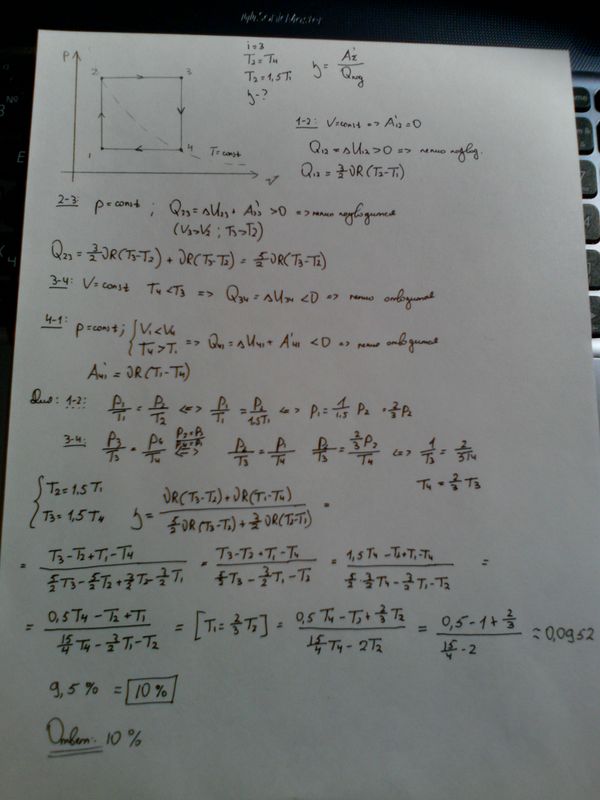 SonicMaster
P
2
3
1
4
T=const
V
i=3
T₂=T₄
T₂=1,5T₁
η-?
η = A'Σ / Qпод
1-2: V=const => A'₁₂=0
Q₁₂=ΔU₁₂>0 => тепло подвод.
Q₁₂ = 3/2 νR(T₂-T₁)
2-3: p=const; Q₂₃=ΔU₂₃+A'₂₃>0 => тепло подводится
(V₃>V₂; T₃>T₂)
Q₂₃ = 3/2 νR(T₃-T₂) + νR(T₃-T₂) = 5/2 νR(T₃-T₂)
3-4: V=const T₄<T₃ => Q₃₄=ΔU₃₄<0 => тепло отводится
4-1: p=const; { V₁<V₄ T₄>T₁ => Q₄₁=ΔU₄₁+A'₄₁<0 => тепло отводится
A'₄₁ = νR(T₁-T₄)
Для: 1-2: P₁/T₁ = P₂/T₂ <=> P₁/T₁ = P₂/1,5T₁ <=> p₁ = 1/1,5 p₂ = 2/3 p₂
3-4: P₃/T₃ = P₄/T₄ <=> P₂/T₃ = P₁/T₄ P₂/T₃ = 2/3 P₂/T₄ <=> 1/T₃ = 2/3T₄
T₄ = 2/3 T₃
{ T₂=1,5T₁ T₃=1,5T₄ η = νR(T₃-T₂)+νR(T₁-T₄) / 5/2 νR(T₃-T₂)+3/2 νR(T₂-T₁) =
= T₃-T₂+T₁-T₄ / 5/2 T₃-5/2 T₂+3/2 T₂-3/2 T₁ = T₃-T₂+T₁-T₄ / 5/2 T₃-3/2 T₁-T₂ = 1,5T₄-T₂+T₁-T₄ / 5/2 · 3/2 T₄-3/2 T₁-T₂ =
= 0,5T₄-T₂+T₁ / 15/4 T₄-3/2 T₁-T₂ = [T₁=2/3 T₂] = 0,5T₄-T₂+2/3 T₂ / 15/4 T₄-2T₂ = 0,5-1+2/3 / 15/4-2 ≈ 0,0952
9,5% = 10%
Ответ: 10%